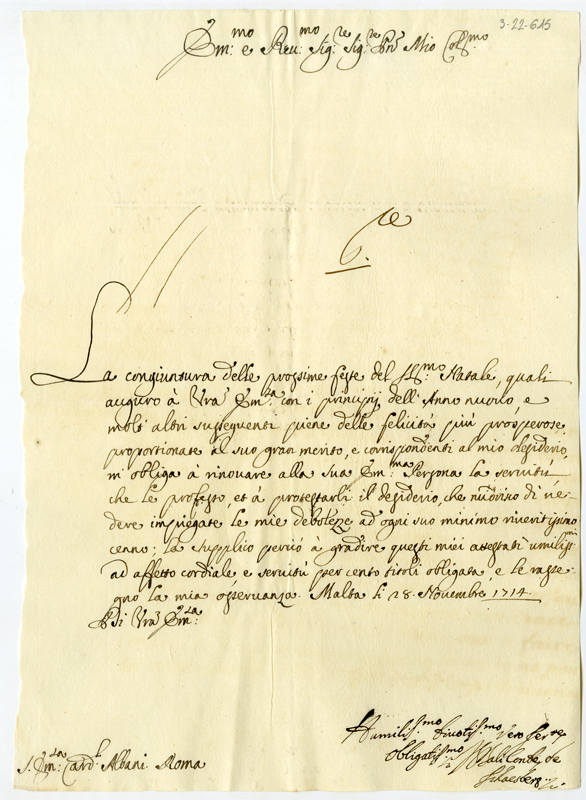 3-22-615
Em:mo e Reu:mo Sig:re Sig:re Pñe Mio Col:mo
La congiuntura delle prossime feste del SS:mo Natale, quali
auguro à Vra Em:za con i principij dell'Anno nuouo, e
molt'altri susseguenti piene delle felicità più prosperose
proportionate al suo gran merito, e corrispondenti al mio desiderio,
m'obliga à rinouare alla Sua Em:ma Persona la seruitù,
che le professo, et à protestarli il desiderio, che nudrisco di ue-
dere impiegate le mie debolezze ad ogni suo minimo riueritissimo
cenno; la supplico perciò à gradire questi miei attestati umiliss:mi
ad affetto cordiale, e seruitù per cento titoli obligata, e le rasse-
gno la mia osseruanza. Malta li 28. Novembre 1714.
Di Vra Em:za
Humiliss:mo Diuotiss:mo Vero Ser:re
Obligatiss:mo
Bali Conte de
Schaesberg
S. Em:za Card:l Albani Roma